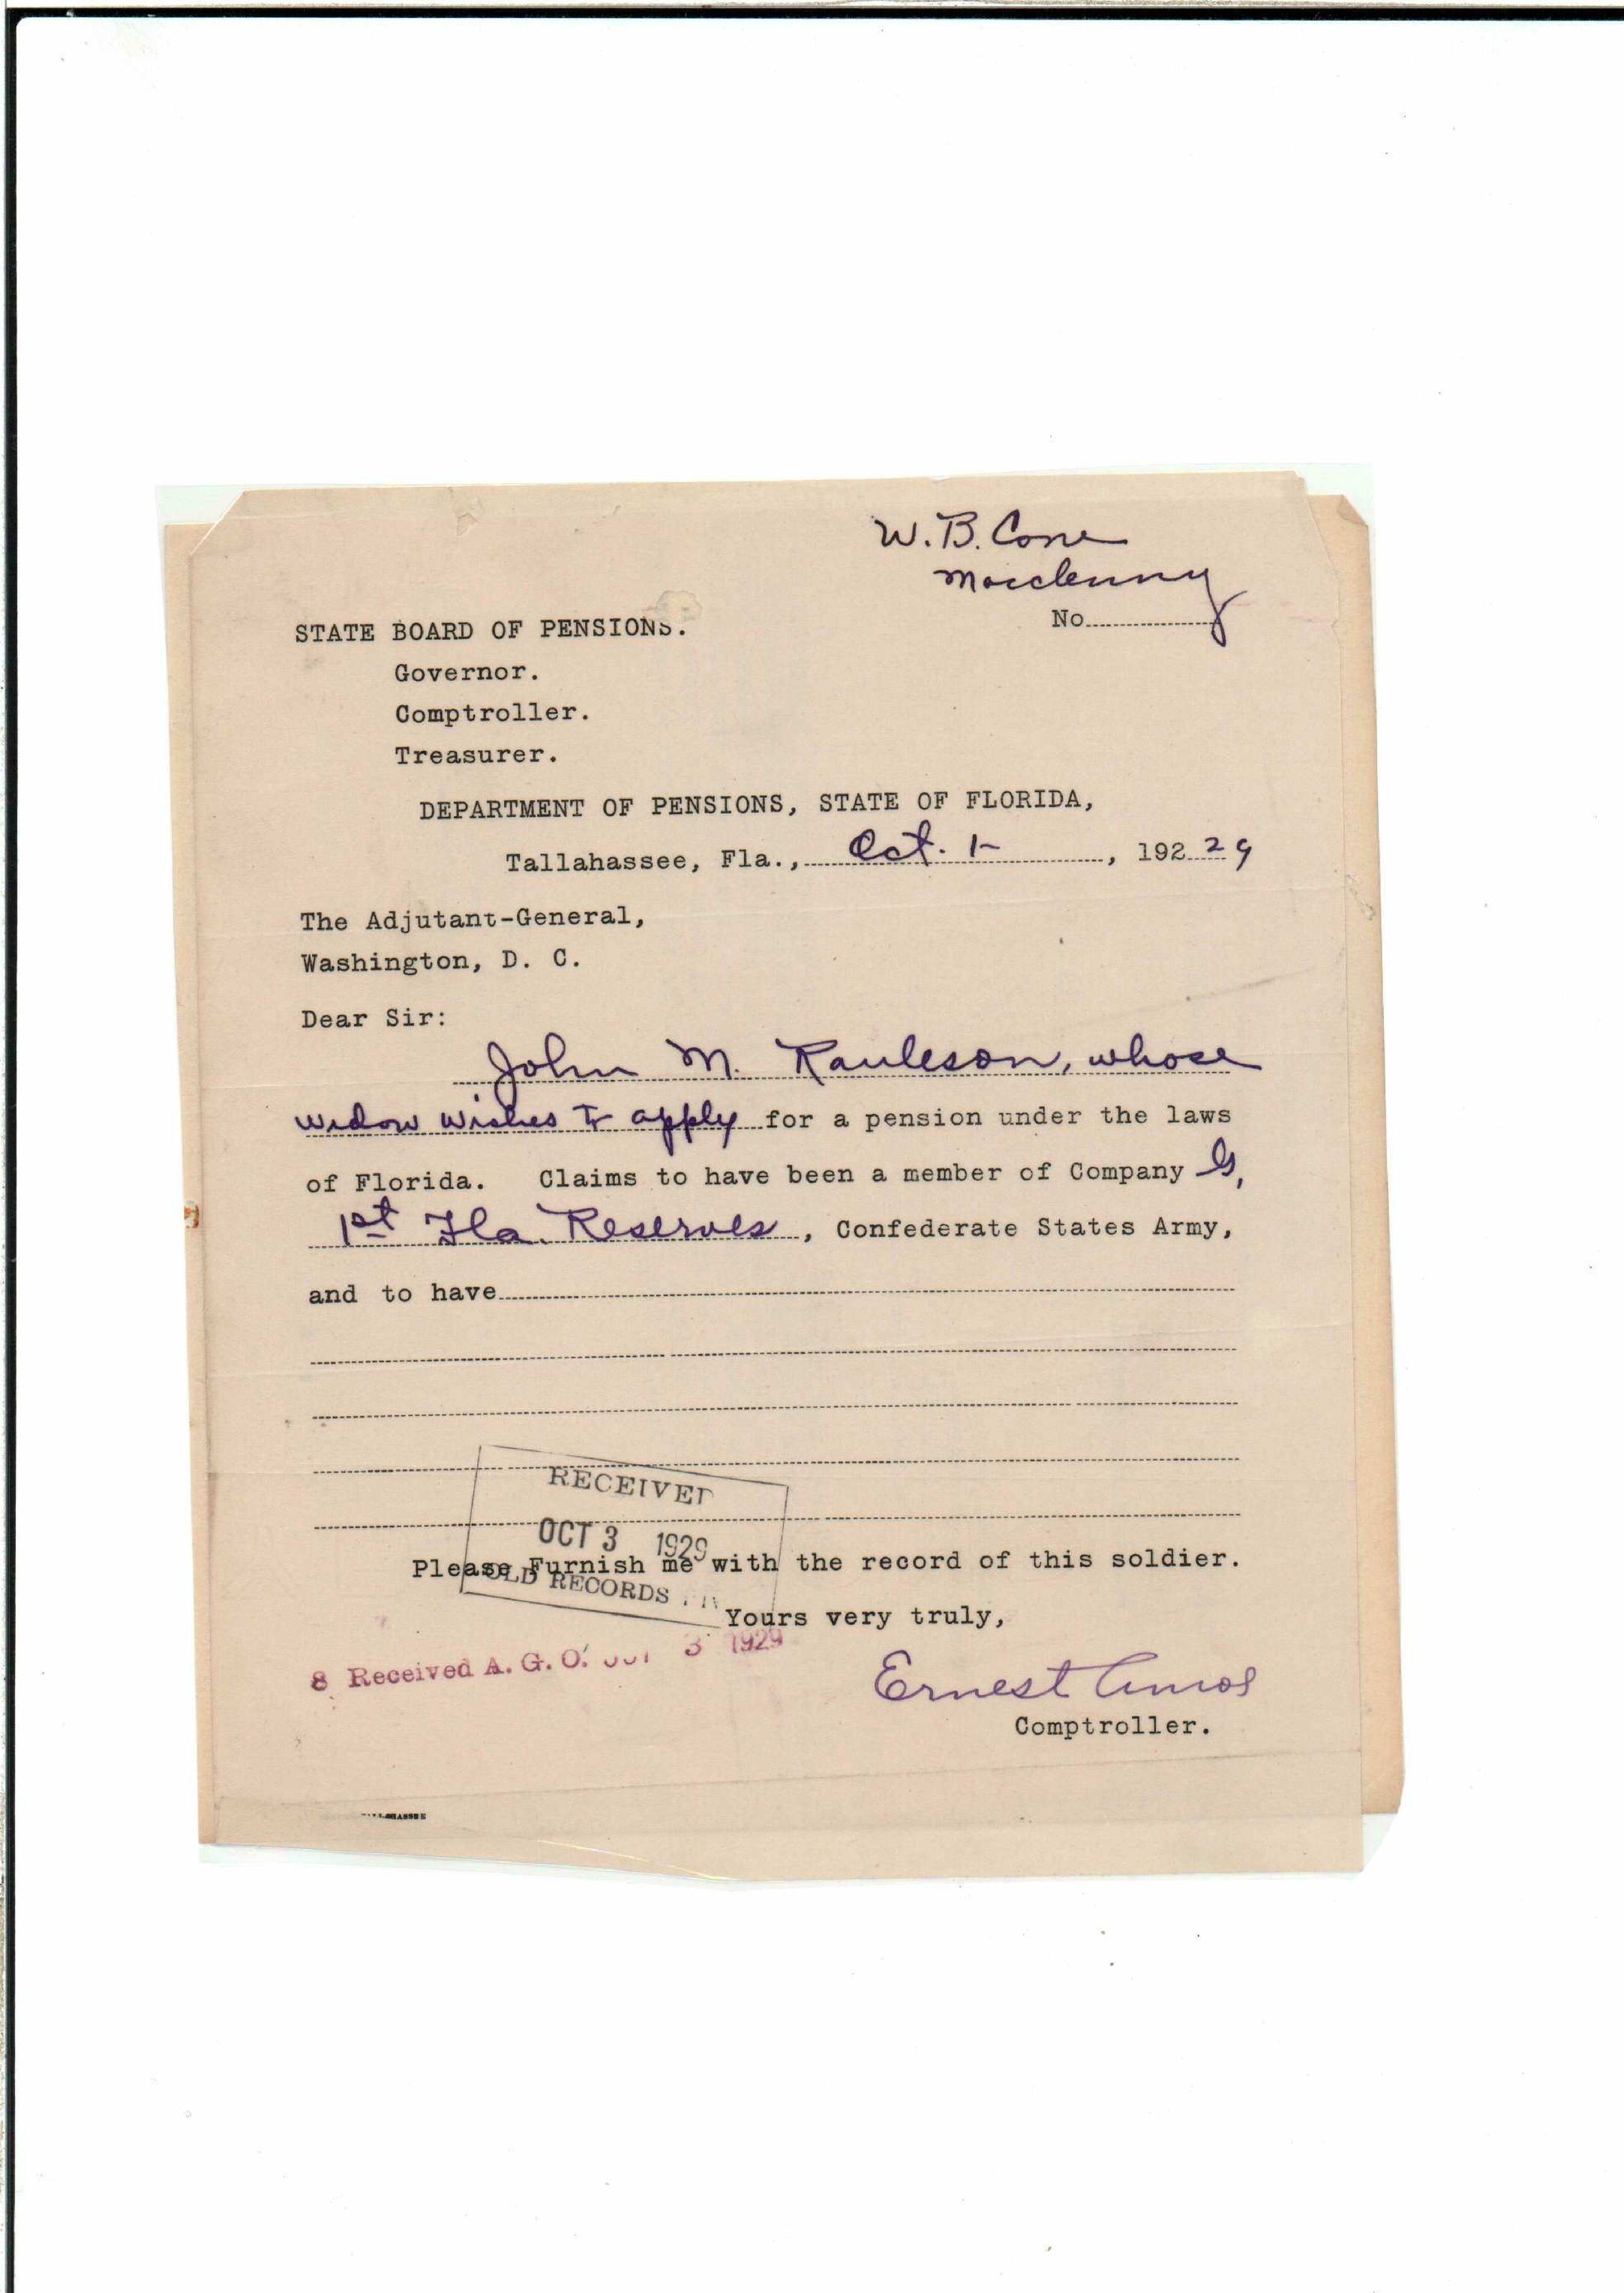 W. B. Cone
Macclenny
No
STATE BOARD OF PENSIONS.
Governor.
Comptroller.
Treasurer.
DEPARTMENT OF PENSIONS, STATE OF FLORIDA,
Tallahassee, Fla., Oct. 1- , 192 29
The Adjutant-General,
Washington, D. C.
Dear Sir:
John M. Rauleson, whose
widow wishes to apply for a pension under the laws
of Florida. Claims to have been a member of Company G,
1st Fla. Reserves, Confederate States Army,
and to have
RECEIVED
OCT 3 1929
OLD RECORDS
Please Furnish me with the record of this soldier.
Yours very truly,
8 Received A. G. O. OCT 3 1929
Ernest Amos
Comptroller.